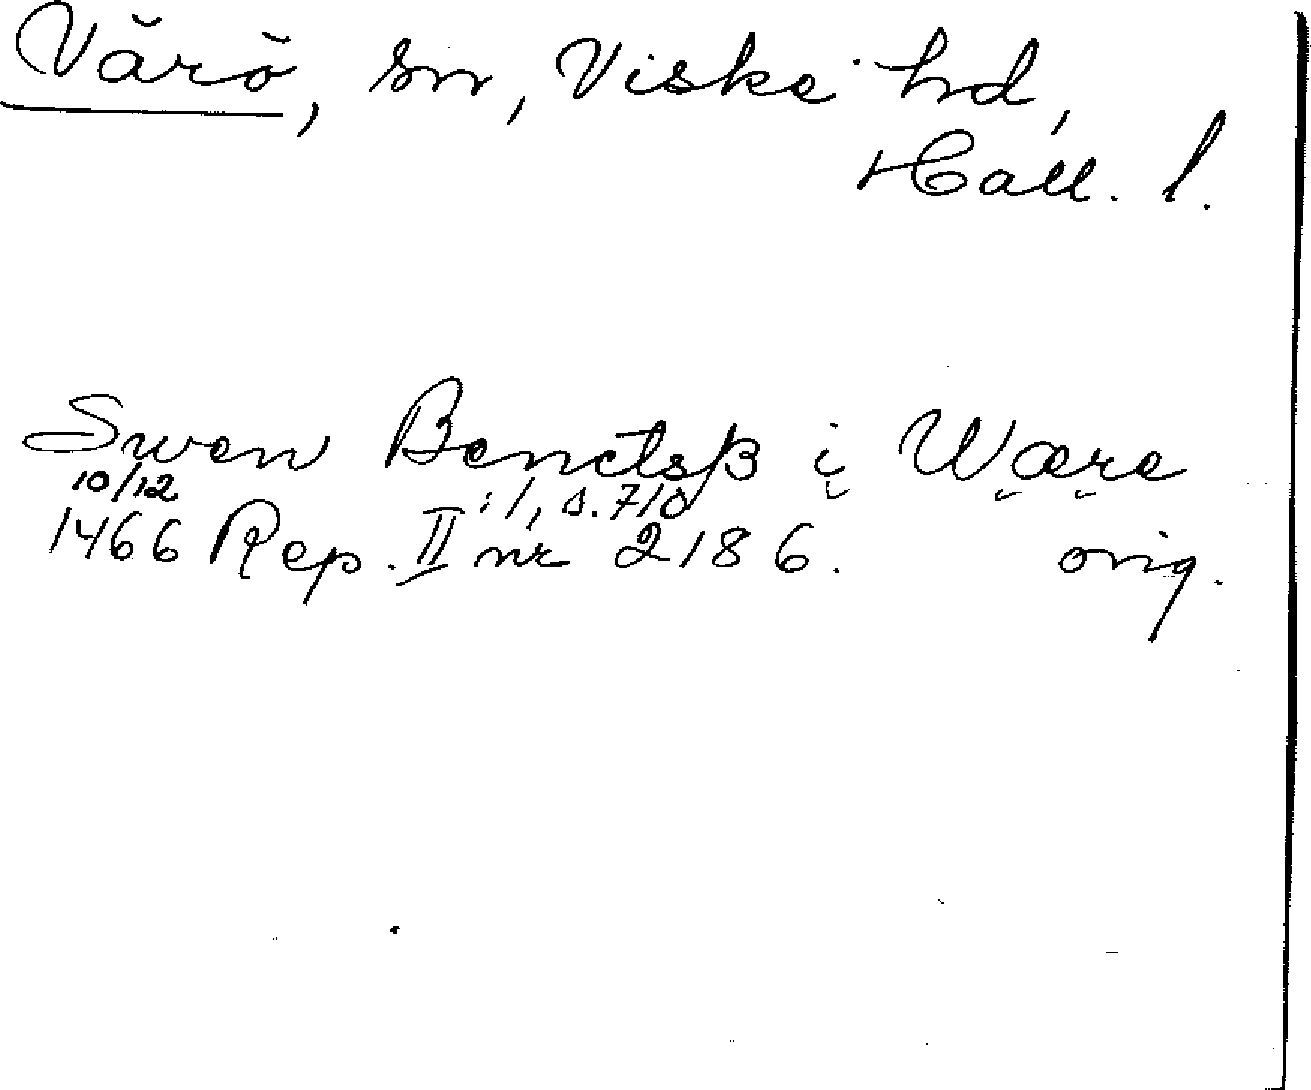 Värö, sn, Viske hd,
Hall. l.
Swen Benctsß i Wære
10/12 :1, s. 710
1466 Rep. II nr 2186. orig.